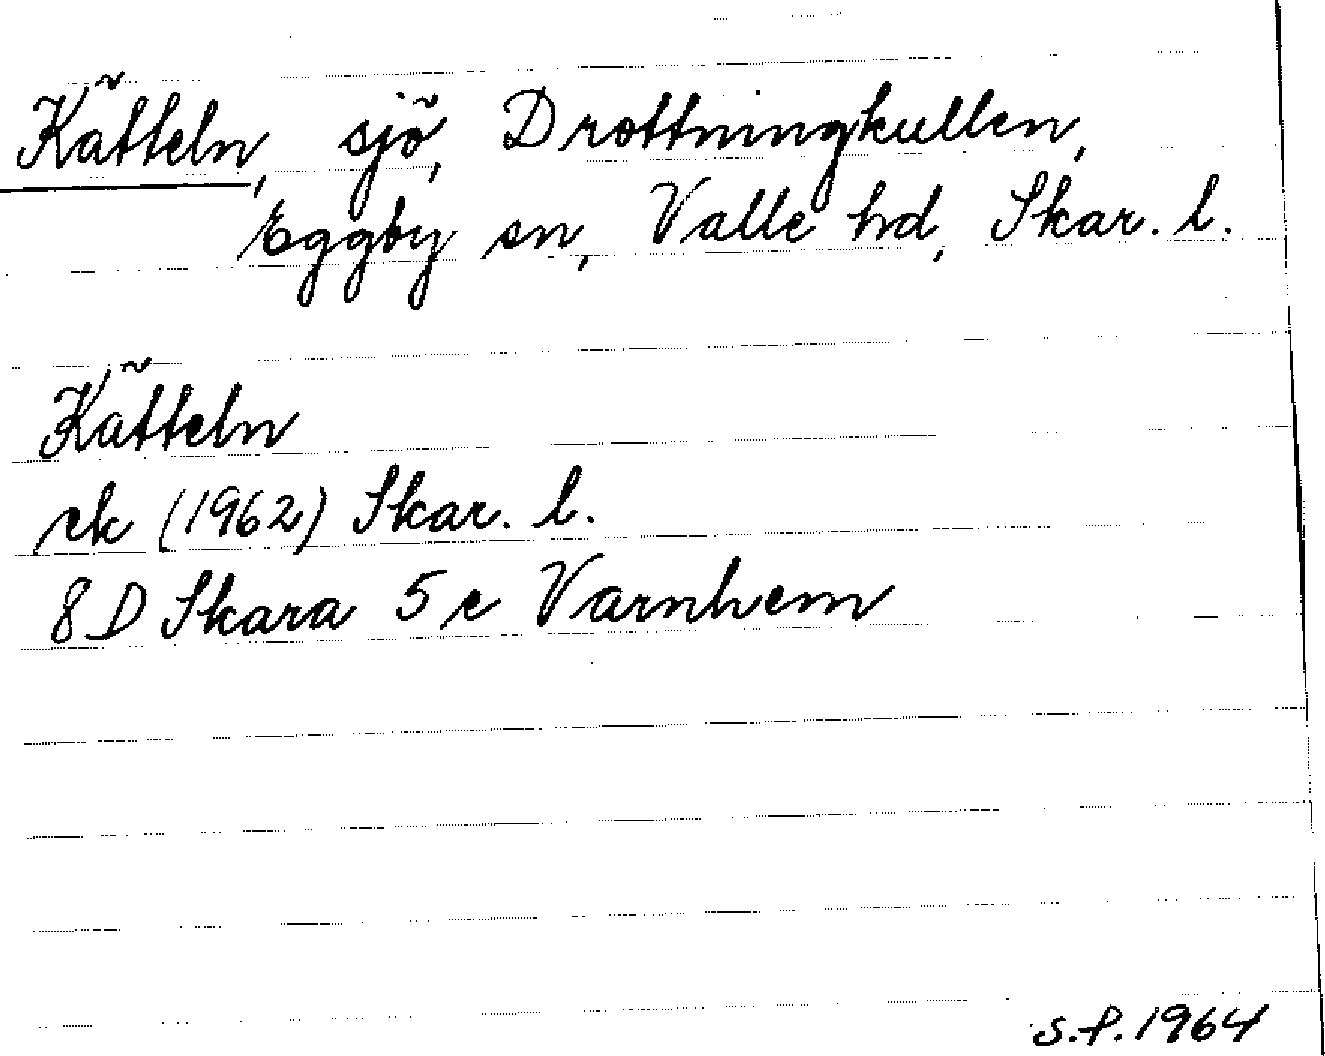 Kätteln, sjö, Drottningkullen,
Eggby sn, Valle hd, Skar. l.
Kätteln
ek (1962) Skar. l.
8D Skara 5e Varnhem
S.P. 1964